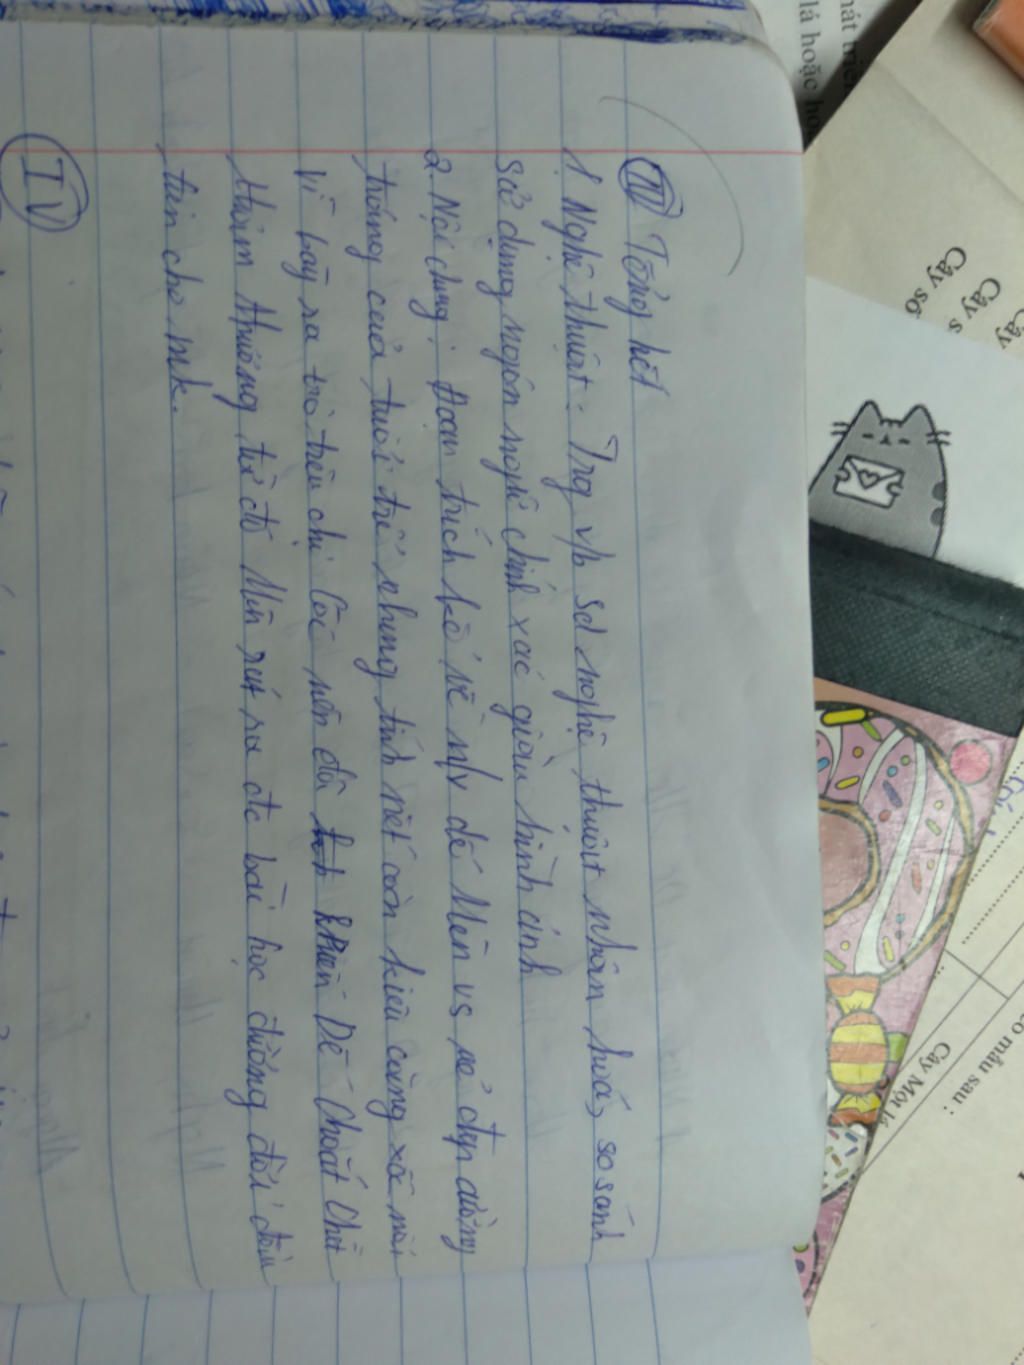 IV Tổng kết
1. Nghệ thuật: Trg vb sd nghệ thuật nhân hoá, so sánh
Sử dụng ngôn ngữ chính xác giàu hình ảnh
2. Nội dung: Đoạn trích kể về n/v dế Mèn vs vẻ đẹp cường
tráng của tuổi trẻ nhưng tính nết còn kiêu căng xốc nổi
Vì bày ra trò trêu chị Cốc nên đã khiến Dế Choắt Chết
thảm thương từ đó Mèn rút ra đc bài học đường đời đầu
tiên cho mk.
IV
hát triển
lá hoặc
Cây số
Cây s
Cây
Cây Mọi lá
eo mẫu sau :